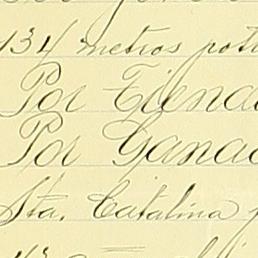 134 metros potr
Por Tienda
Por Ganad
Sta. Catalina p